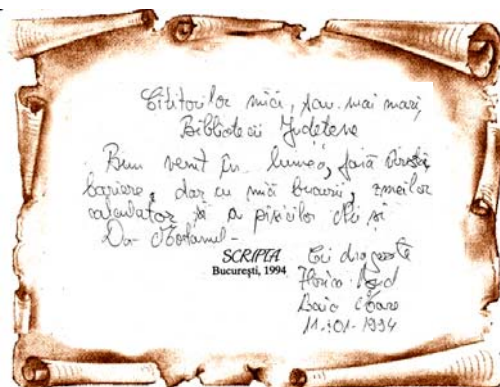 Cititorilor mici, sau mai mari,
Bibliotecii Județene
Bun venit în lumea, fără vârstă
bariere, dar cu mici bucurii, zmeilor
calculator și a pisicilor Chi și
Da
SCRIPTA
București, 1994
Cu dragoste
Baia Mare
11-01-1994